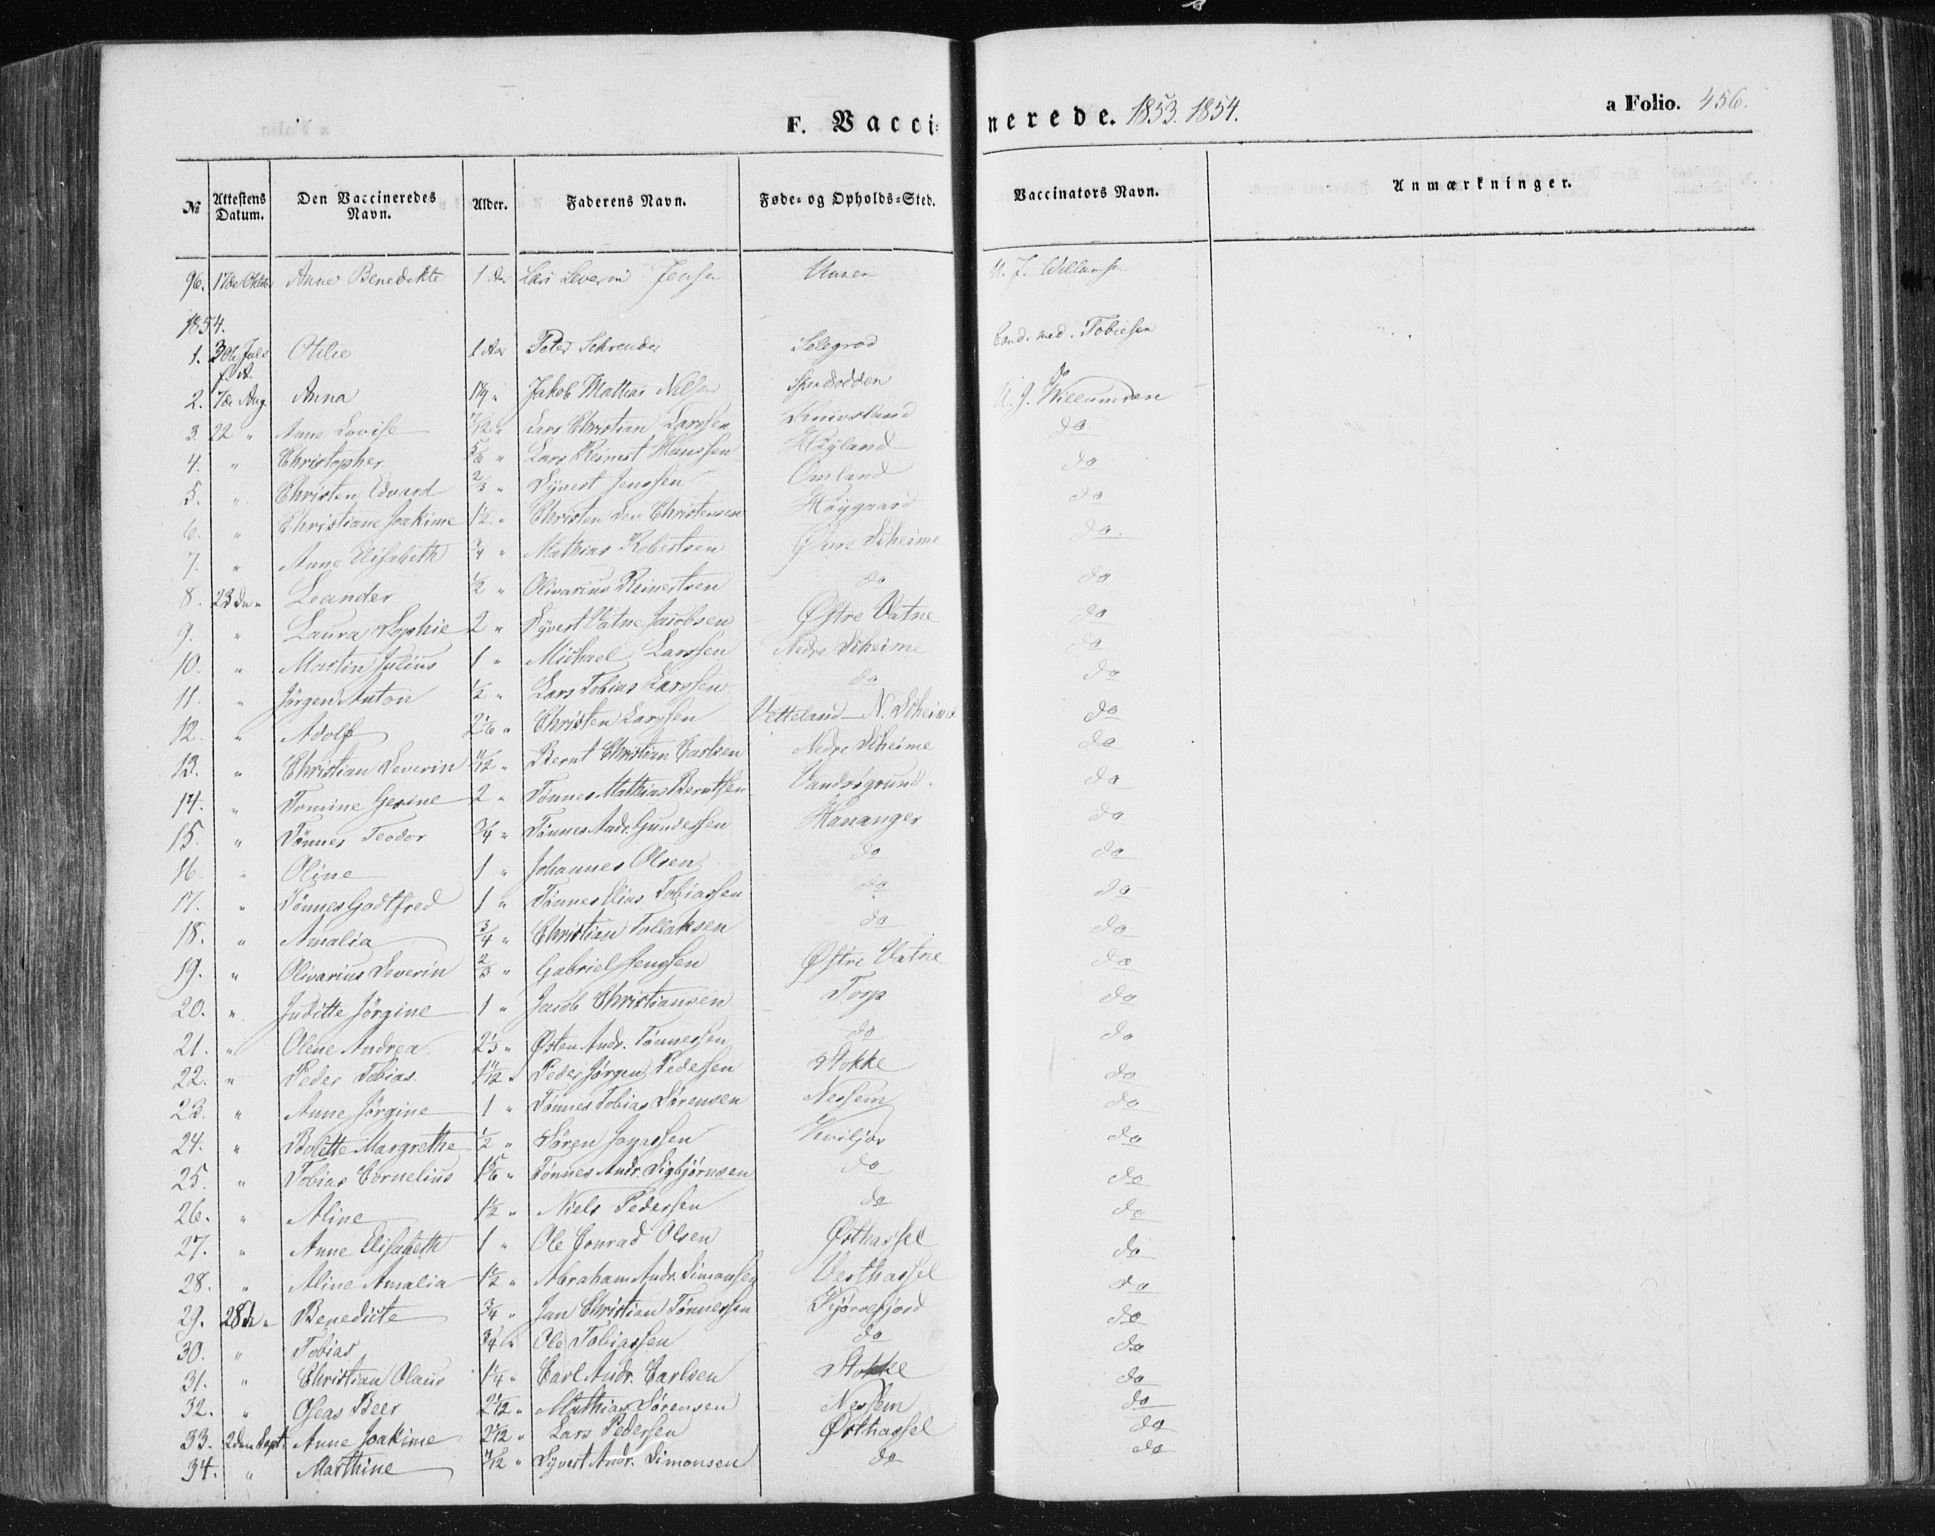 F. Vaccinerede. 1853. 1854. a Folio. 456.
№ Attestens Datum. Den Vaccineredes Navn. Alder. Faderens Navn. Føde- og Opholds-Sted. Vaccinators Navn. Anmærkninger.
96. 17de Anne Benedikte 1 Jensen
1854.
1. 30te Othilie 1 Aar Peter Cand. med. Tobiesen
2. 7de Aug. Anna Jakob Mathias do
U. J. Willumsen
3. 22 " Anne Lovise 7/12 " Lars Christian Larssen do
4. " Christopher 5/6 " Lars Reinert Hanssen Høyland do
5. " Christen Edvard 2/3 " Syvert Jenssen Omland do
6. " Christiane Joakime 1½ " Christen Sev Christensen Høygaard do
7. " Anne Elisabeth ¾ " Mathias Robertsen Øvre Skeime
8. 23de " Leander ½ " Olivarius Reinertsen do do
9. " Laura Sophie 2 " Syvert Vatne Jacobsen Østre Vatne do
10. " Martin Julius 1 " Michael Larssen Nedre Skeime do
11. " Jørgen Anton ½ " Lars Tobias Larssen do do
12. " Adolf 2 1/6 " Christen Larssen Vetteland N. Skeime do
13. " Christian Severin 11/12 " Bernt Christian Carlsen Nedre Skeime do
14. " Tomine Gesine 2 " Tønnes Mathias Berntsen Vandsgrund do
15. " Tønnes Teodor ¾ " Tønnes Andr. Gunderssen Hananger do
16. " Oline 1 " Johannes Olsen do do
17. " Tønnes Godtfred 1 " Tønnes Elias Tobiassen do do
18. " Amalia ¾ " Christian Tollaksen do do
19. " Olivarius Severin 2/3 " Gabriel Jenssen Østre Vatne do
20. " Juditte Jørgine 1 " Jacob Christiansen Torp do
21. " Olene Andrea 2 1/3 " Østen Andr. Tønnessen do do
22. " Peder Tobias 1 11/12 " Peder Jørgen Pederssen Stokke do
23. " Anne Jørgine 1 " Tønnes Tobias Sørensen Nessem do
24. " Bolette Margrethe ½ " Søren Jonassen Kviljo do
25. " Tobias Cornelius 1 5/6 " Tønnes Andr. Sigbjørnsen do do
26. " Aline 1½ " Niels Pederssen do do
27. " Anne Elisabeth 1 " Ole Conrad Olsen Østhassel do
28. " Aline Amalia 1½ " Abraham Andr. Simonsen Vesthassel do
29. 28de " Benedicte ¾ " Jan Christian Tønnessen Skjørvefjord do
30. " Tobias ¾ " Ole Tobiassen do do
31. " Christian Olaus 1¼ " Carl Andr. Carlsen Stokke do
32. " Oseas Beer 2 1/12 " Mathias Sørensen Nessem do
33. 2den Sept. Anne Joakime 2 1/12 " Lars Pedersen Østhassel do
34. " Marthine 11/12 " Syvert Andr. Simonsen do do